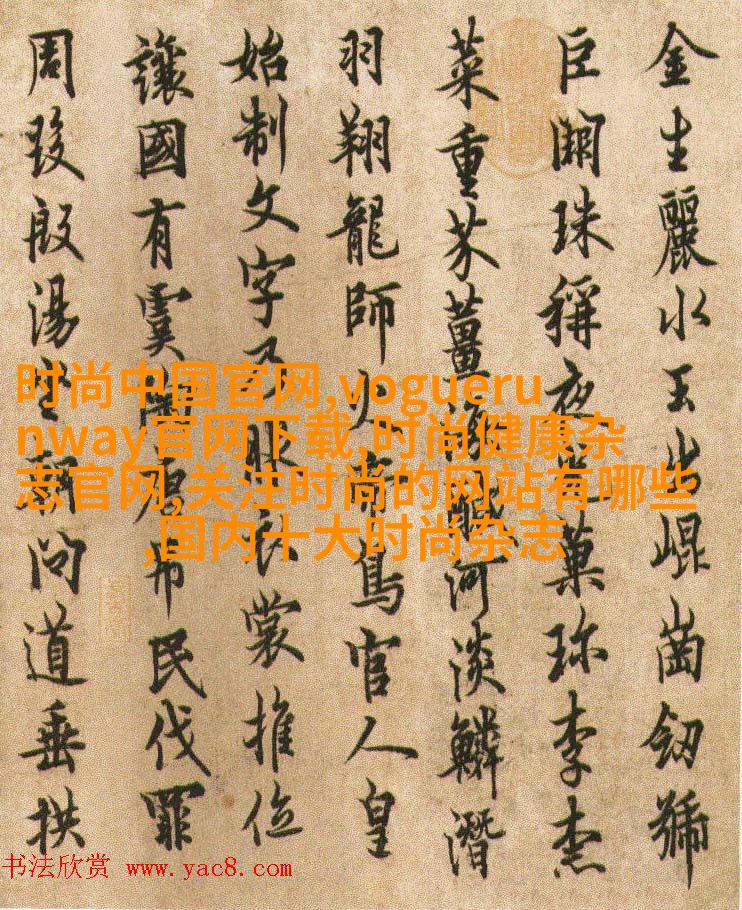 金生麗水玉出崐崗劒號
巨闕珠稱夜光菓珎李柰
菜重芥薑海醎河淡鱗潛
羽翔龍師火帝鳥官人皇
始制文字乃服衣裳推位
讓國有虞陶唐弔民伐罪
周發殷湯坐朝問道垂拱
时尚中国官网,vogueru
nway官网下载,时尚健康杂
志官网,关注时尚的网站有哪些
,国内十大时尚杂志
书法欣赏 www.yac8.com